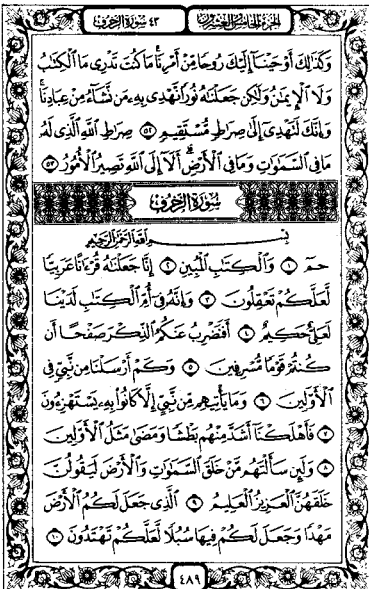 الجزء الخامس والعشرون ٤٣ سورة الزخرف
وَكَذَٰلِكَ أَوْحَيْنَآ إِلَيْكَ رُوحًا مِّنْ أَمْرِنَا ۚ مَا كُنتَ تَدْرِى مَا ٱلْكِتَٰبُ
وَلَا ٱلْإِيمَٰنُ وَلَٰكِن جَعَلْنَٰهُ نُورًا نَّهْدِى بِهِۦ مَن نَّشَآءُ مِنْ عِبَادِنَا ۚ
وَإِنَّكَ لَتَهْدِىٓ إِلَىٰ صِرَٰطٍ مُّسْتَقِيمٍ ٥٢ صِرَٰطِ ٱللَّهِ ٱلَّذِى لَهُۥ
مَا فِى ٱلسَّمَٰوَٰتِ وَمَا فِى ٱلْأَرْضِ ۗ أَلَآ إِلَى ٱللَّهِ تَصِيرُ ٱلْأُمُورُ ٥٣
سُورَةُ الزُّخْرُفِ
بِسْمِ ٱللَّهِ ٱلرَّحْمَٰنِ ٱلرَّحِيمِ
حمٓ ١ وَٱلْكِتَٰبِ ٱلْمُبِينِ ٢ إِنَّا جَعَلْنَٰهُ قُرْءَٰنًا عَرَبِيًّا
لَّعَلَّكُمْ تَعْقِلُونَ ٣ وَإِنَّهُۥ فِىٓ أُمِّ ٱلْكِتَٰبِ لَدَيْنَا
لَعَلِىٌّ حَكِيمٌ ٤ أَفَنَضْرِبُ عَنكُمُ ٱلذِّكْرَ صَفْحًا أَن
كُنتُمْ قَوْمًا مُّسْرِفِينَ ٥ وَكَمْ أَرْسَلْنَا مِن نَّبِىٍّ فِى
ٱلْأَوَّلِينَ ٦ وَمَا يَأْتِيهِم مِّن نَّبِىٍّ إِلَّا كَانُوا۟ بِهِۦ يَسْتَهْزِءُونَ
٧ فَأَهْلَكْنَآ أَشَدَّ مِنْهُم بَطْشًا وَمَضَىٰ مَثَلُ ٱلْأَوَّلِينَ
٨ وَلَئِن سَأَلْتَهُم مَّنْ خَلَقَ ٱلسَّمَٰوَٰتِ وَٱلْأَرْضَ لَيَقُولُنَّ
خَلَقَهُنَّ ٱلْعَزِيزُ ٱلْعَلِيمُ ٩ ٱلَّذِى جَعَلَ لَكُمُ ٱلْأَرْضَ
مَهْدًا وَجَعَلَ لَكُمْ فِيهَا سُبُلًا لَّعَلَّكُمْ تَهْتَدُونَ ١٠
٤٨٩